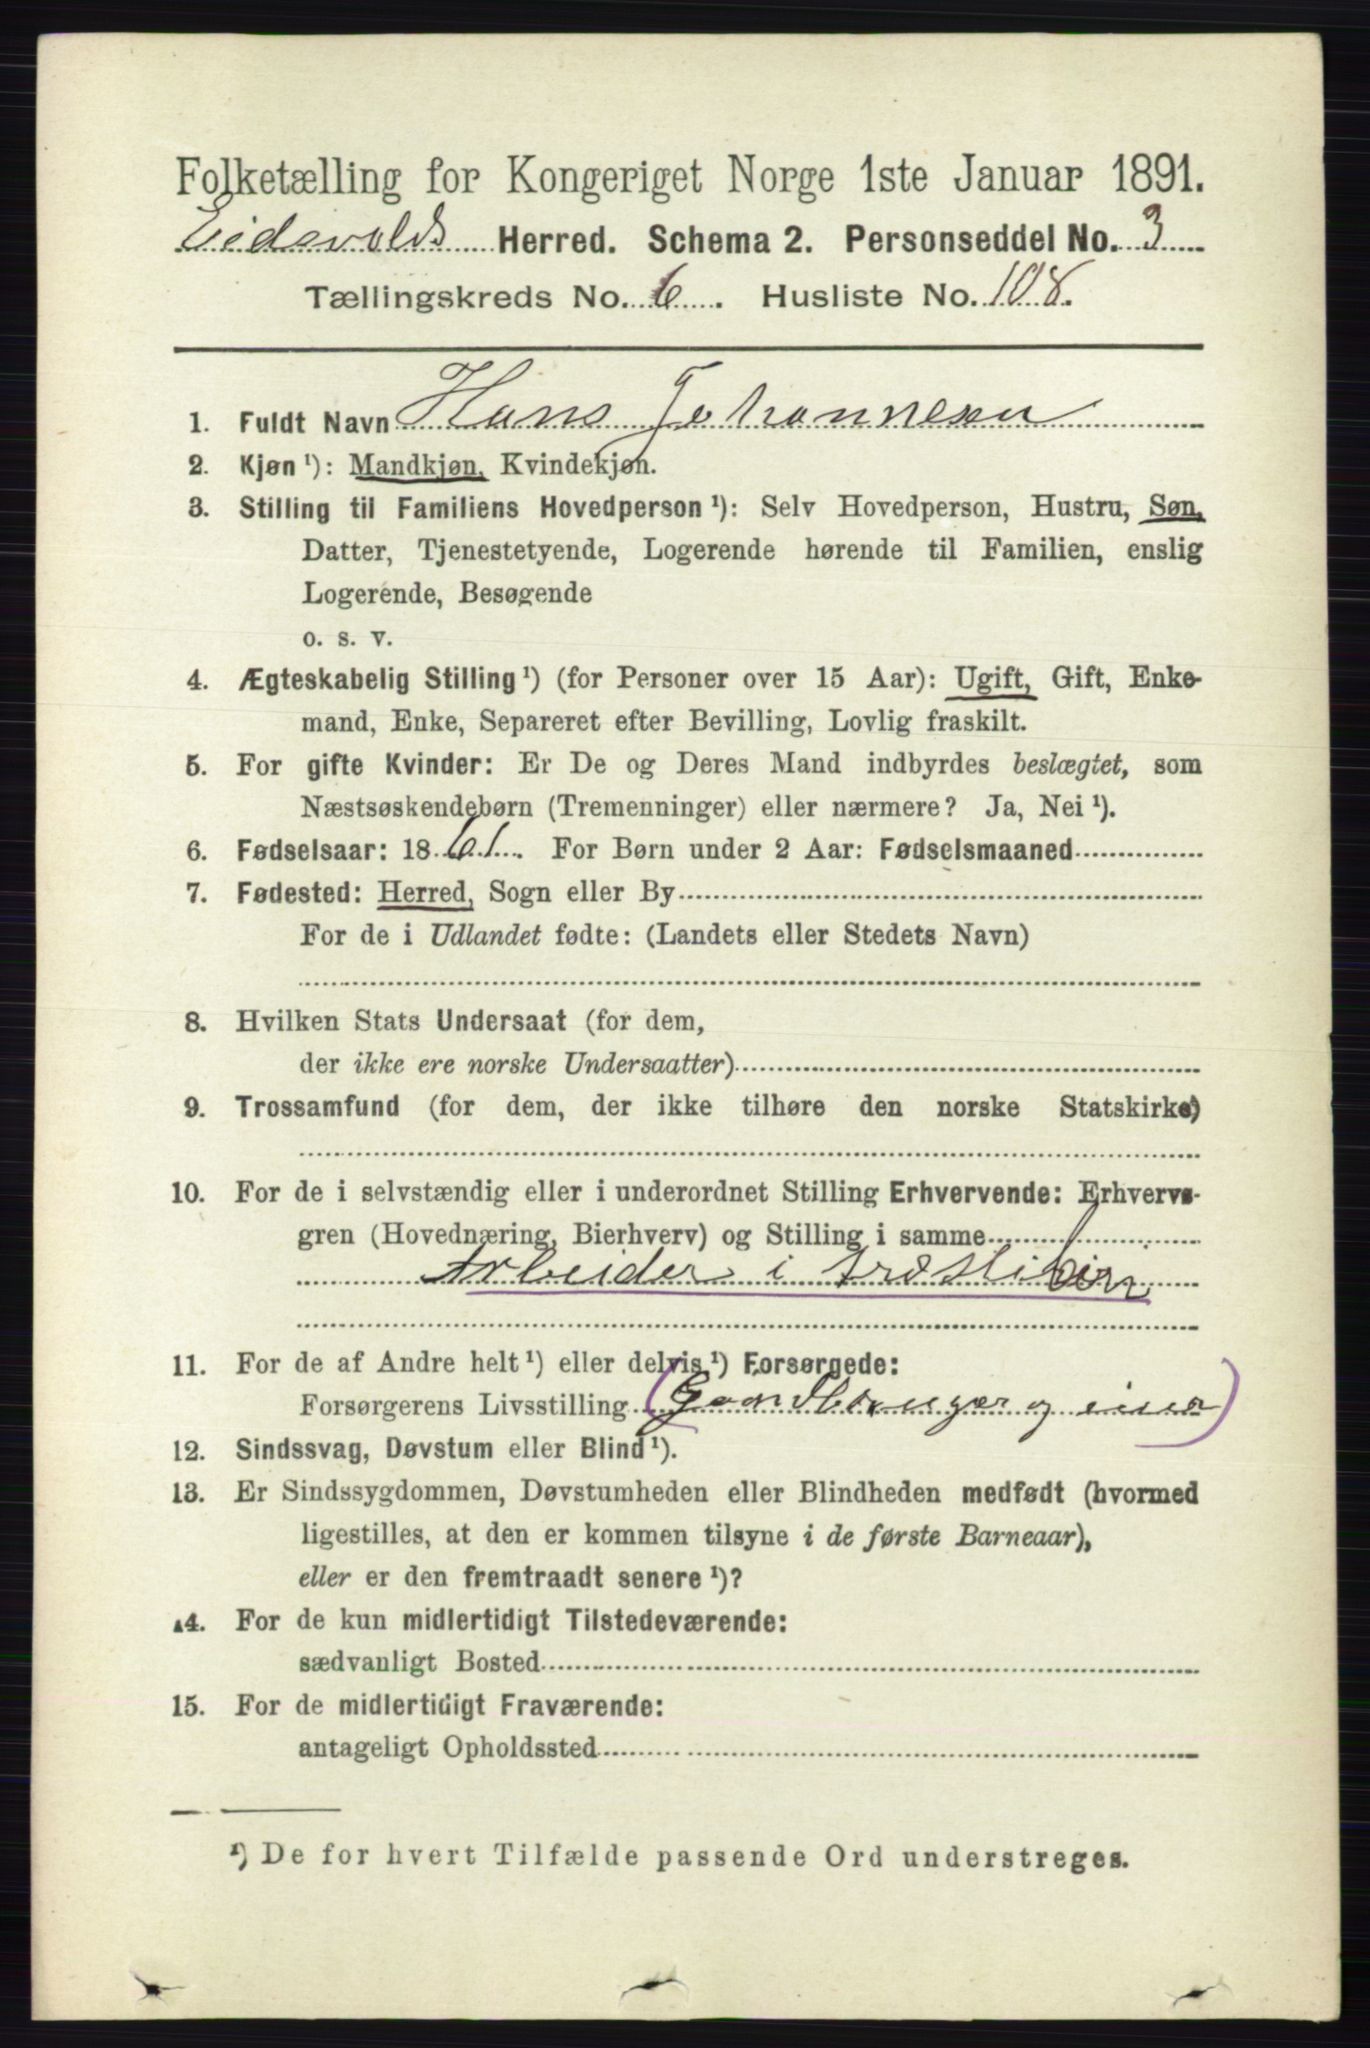 Folketælling for Kongeriget Norge 1ste Januar 1891.
Eidsvolds Herred. Schema 2. Personseddel No. 3
Tællingskreds No. 6. Husliste No. 108.
1. Fuldt Navn Hans Johannesen
2. Kjøn ¹): Mandkjøn, Kvindekjøn.
3. Stilling til Familiens Hovedperson ¹): Selv Hovedperson, Hustru, Søn,
Datter, Tjenestetyende, Logerende hørende til Familien, enslig
Logerende, Besøgende
o. s. v.
4. Ægteskabelig Stilling ¹) (for Personer over 15 Aar): Ugift, Gift, Enke-
mand, Enke, Separeret efter Bevilling, Lovlig fraskilt.
5. For gifte Kvinder: Er De og Deres Mand indbyrdes beslægtet, som
Næstsøskendebørn (Tremenninger) eller nærmere? Ja, Nei ¹).
6. Fødselsaar: 1861. For Børn under 2 Aar: Fødselsmaaned
7. Fødested: Herred, Sogn eller By
For de i Udlandet fødte: (Landets eller Stedets Navn)
8. Hvilken Stats Undersaat (for dem,
der ikke ere norske Undersaatter)
9. Trossamfund (for dem, der ikke tilhøre den norske Statskirke)
10. For de i selvstændig eller i underordnet Stilling Erhvervende: Erhvervs-
gren (Hovednæring, Bierhverv) og Stilling i samme
Arbeider i træsliberi
11. For de af Andre helt ¹) eller delvis ¹) Forsørgede:
Forsørgerens Livsstilling (Gaardbruger og eier)
12. Sindssvag, Døvstum eller Blind ¹).
13. Er Sindssygdommen, Døvstumheden eller Blindheden medfødt (hvormed
ligestilles, at den er kommen tilsyne i de første Barneaar),
eller er den fremtraadt senere ¹)?
14. For de kun midlertidigt Tilstedeværende:
sædvanligt Bosted
15. For de midlertidigt Fraværende:
antageligt Opholdssted
¹) De for hvert Tilfælde passende Ord understreges.